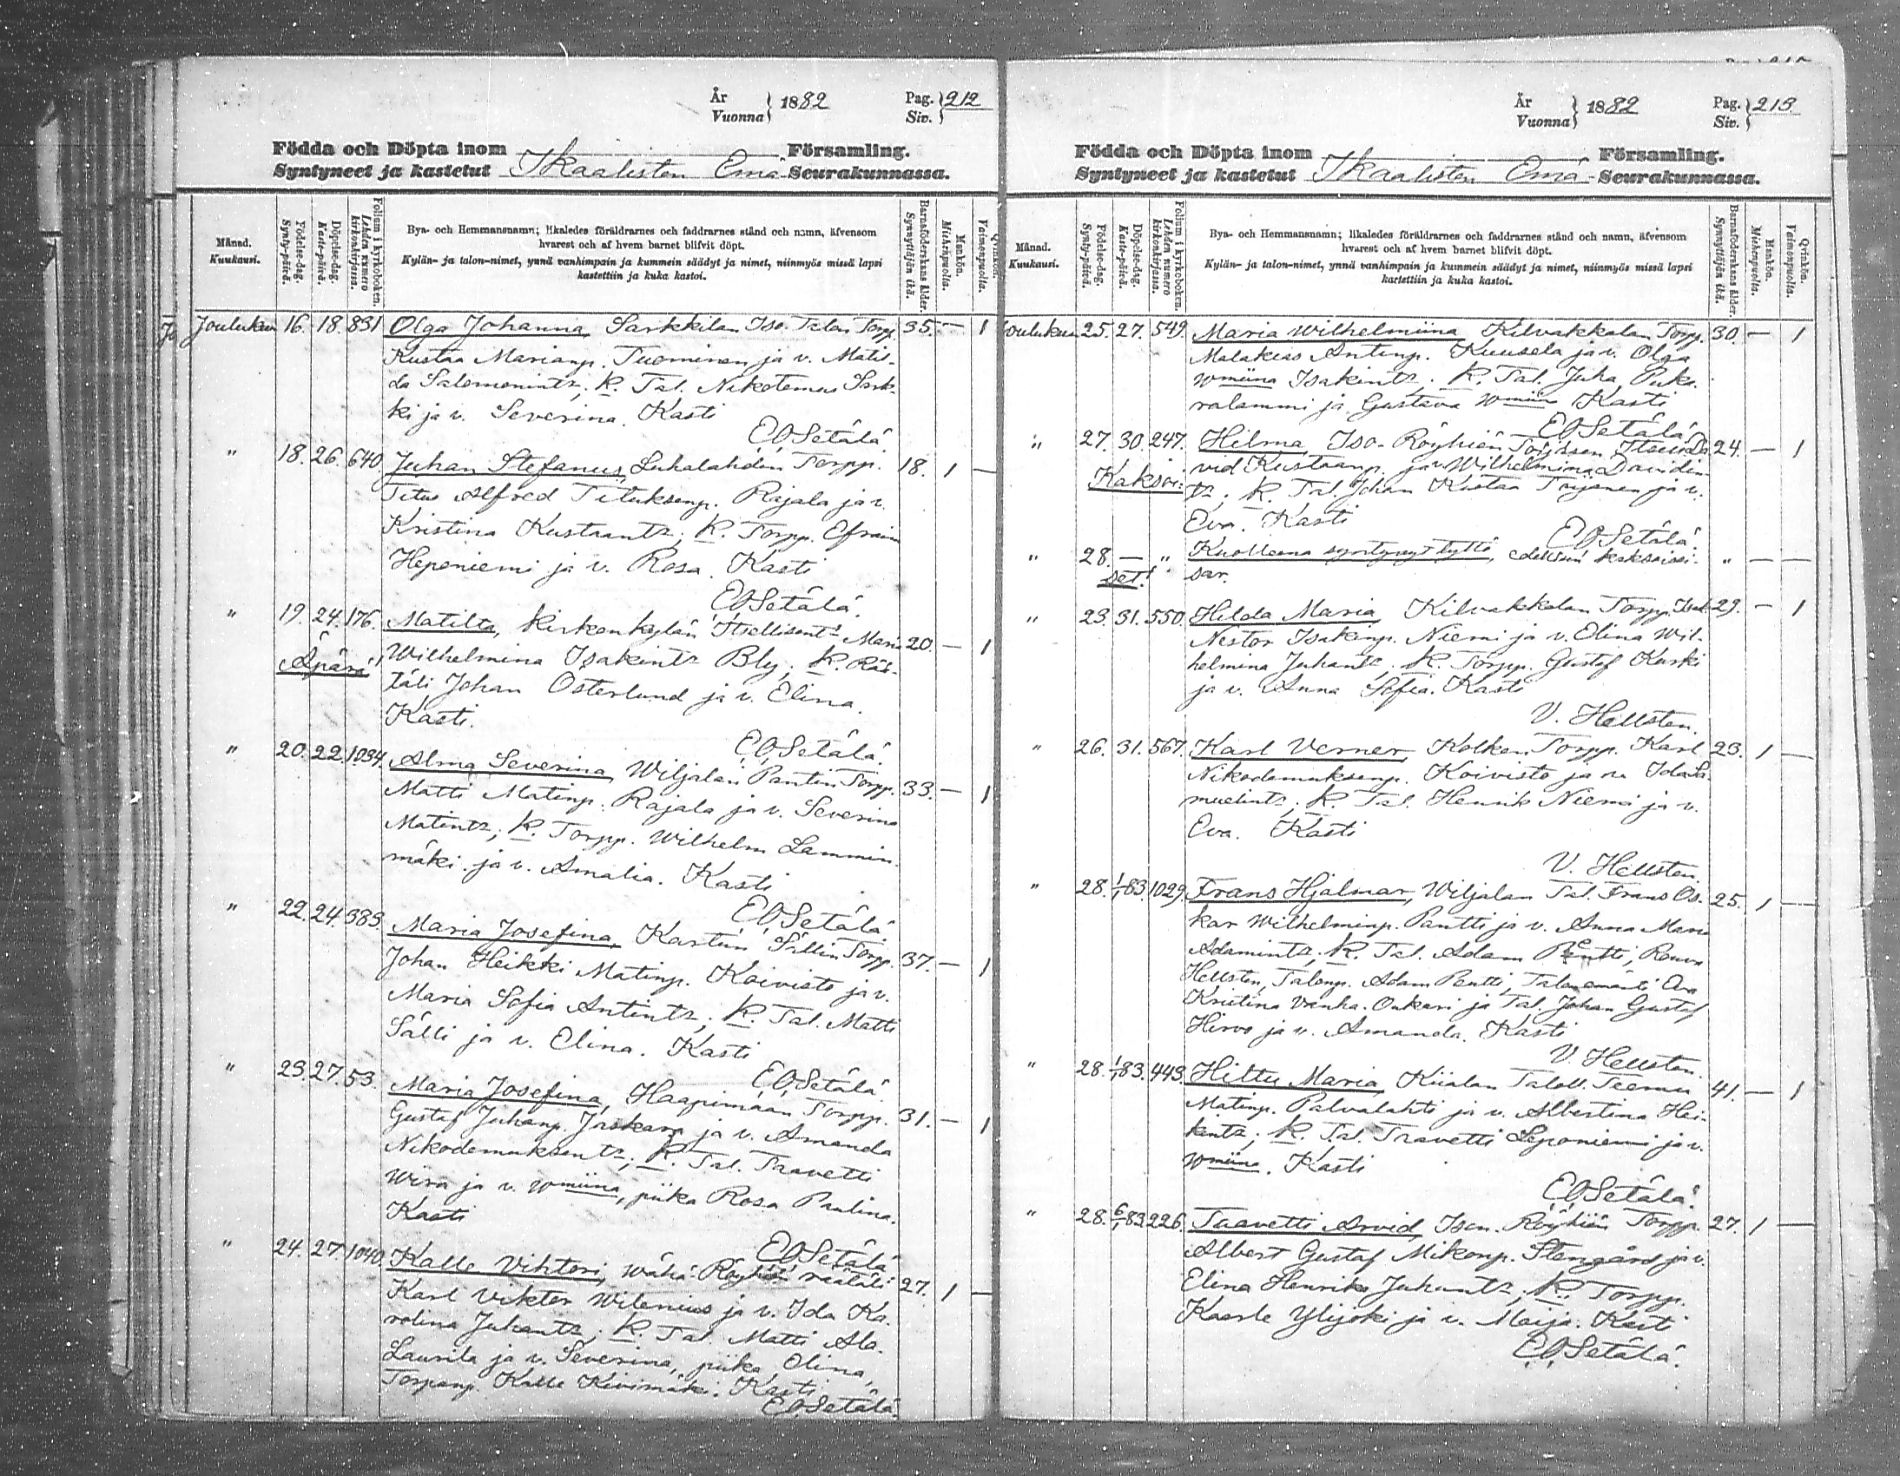 År
Vuonna } 1882
Pag.
Siv. } 212
Födda och Döpta inom Församling.
Syntyneet ja kastetut Ikaalisten Emä Seurakunnassa.
Månad.
Kuukausi.
Födelse-dag.
Synty-päivä.
Döpelse-dag.
Kaste-päivä.
Folium i kyrkoboken.
Lehden numero kirkonkirjassa.
Bya- och Hemmansnamn; likaledes föräldrarnes och faddrarnes stånd och namn, äfvensom
hvarest och af hvem barnet blifvit döpt.
Kylän- ja talon-nimet, ynnä vanhimpain ja kummein säädyt ja nimet, niinmyös missä lapsi
kastettiin ja kuka kastoi.
Barnaföderskans ålder.
Synnyttäjän ikä.
Mankön.
Miehenpuolia.
Qvinkön.
Vaimonpuolia.
Joulukuu 16. 18. 831 Olga Johanna, Sarkkilan Iso-Talon Torp. 35. — 1
Kustaa Marianp. Tuominen ja v. Matil-
da Salomonintr; K. Tal. Nikotemus Sark-
ki ja v. Severina. Kasti
E.O. Setälä
" 18. 26. 640. Juhan Stefanus, Luhalahden Torpp. 18. 1 —
Titus Alfred Tituksenp. Rajala ja v.
Kristina Kustaantr; K. Torpp. Efraim
Heponiemi ja v. Rosa. Kasti
E.O. Setälä.
" 19. 24. 176. Matilta, Kirkonkylän Itsellisent. Maria 20. — 1
Äpärä! Wilhelmina Isakintr Bly; K. Rää-
täli Johan Österlund ja v. Elina.
Kasti.
E.O. Setälä.
" 20. 22. 1034. Alma Severina, Wiljalan Pantin Torpp. 33. — 1
Matti Matinp. Rajala ja v. Severina
Matintr; K. Torpp. Wilhelm Lammin-
mäki ja v. Amalia. Kasti
E.O. Setälä.
" 22. 24. 383. Maria Josefina, Kartun Sällin Torpp. 37. — 1
Johan Heikki Matinp. Koivisto ja v.
Maria Sofia Antintr; K. Tal. Matti
Sälli ja v. Elina. Kasti
E.O. Setälä
" 23. 27. 53. Maria Josefina, Haapimaan Torpp. 31. — 1
Gustaf Juhanp. Jaskara ja v. Amanda
Nikodemuksentr; K. Tal. Taavetti
Wira ja v. Wmiina, piika Rosa Paulina.
Kasti
E.O. Setälä
" 24. 27. 1040. Kalle Vihtori, Wähä-Röyhiön räätäli 27. 1 —
Karl Viktor Wilenius ja v. Ida Ka-
rolina Juhantr; K. Tal. Matti Ala-
Laurila ja v. Severina, piika Elina,
Torpanp. Kalle Kivimäki. Kasti
E.O. Setälä.
År
Vuonna } 1882
Pag.
Siv. } 213
Födda och Döpta inom Församling.
Syntyneet ja kastetut Ikaalisten Emä- Seurakunnassa.
Månad.
Kuukausi.
Födelse-dag.
Synty-päivä.
Döpelse-dag.
Kaste-päivä.
Folium i kyrkoboken.
Lehden numero kirkonkirjassa.
Bya- och Hemmansnamn; likaledes föräldrarnes och faddrarnes stånd och namn, äfvensom
hvarest och af hvem barnet blifvit döpt.
Kylän- ja talon-nimet, ynnä vanhimpain ja kummein säädyt ja nimet, niinmyös missä lapsi
kastettiin ja kuka kastoi.
Barnaföderskans ålder.
Synnyttäjän ikä.
Mankön.
Miehenpuolia.
Qvinkön.
Vaimonpuolia.
Joulukuu 25. 27. 549. Maria Wilhelmiina, Kilvakkalan Torpp. 30. — 1
Malakias Antinp. Kuusela ja v. Olga
Wmiina Isakintr; K. Tal. Juha
ralammi ja Gustava Wmiin Kasti
E.O. Setälä.
" 27. 30. 247. Hilma, Iso-Röyhiön 24. — 1
Kaksoi- vid Kustaanp. ja v. Wilhelmina Davidin-
tr; K. Tal. Johan Kustaa ja v.
Eva. Kasti
E.O. Setälä
" 28. — " Kuolleena syntynyt tyttö, edellisen kaksoissi- " — —
set! sar.
" 23. 31. 550. Hilda Maria, Kilvakkalan Torpp. 29. — 1
Nestor Isakinp. Niemi ja v. Elina Wil-
helmina Juhantr; K. Torpp. Gustaf Kurki
ja v. Anna Sofia. Kasti
V. Hellsten.
" 26. 31. 567. Karl Verner, Kolken Torpp. Karl 23. 1 —
Nikodemuksenp. Koivisto ja v. Ida Sa-
muelintr; K. Tal. Henrik Niemi ja v.
Eva. Kasti
V. Hellsten.
" 28. 1/1 83. 1029. Frans Hjalmar, Wiljalan Tal. Frans Os- 25. 1 —
kar Wilhelminp. Pantti ja v. Anna Maria
Adamintr; K. Tal. Adam Pentti, Rouva
Hellsten, Talonp. Adam Pentti, Talonemäntä Eva
Kristina Vanha-Onkari ja Tal. Johan Gustaf
Hirvo ja v. Amanda. Kasti
V. Hellsten.
" 28. 1/1 83. 443. Hiltu Maria, Kiialan Taloll. Teemu 41. — 1
Matinp. Palvalahti ja v. Albertina Hei-
kintr; K. Tal. Taavetti Leponiemi ja v.
Wmiina. Kasti
E.O. Setälä.
" 28. 6/1 83. 226. Taavetti Arvid, Ison-Röyhiön Torpp. 27. 1 —
Albert Gustaf Mikonp. Stengård ja v.
Elina Henrika Juhantr; K. Torpp.
Kaarle Ylijoki ja v. Maija. Kasti
E.O. Setälä.